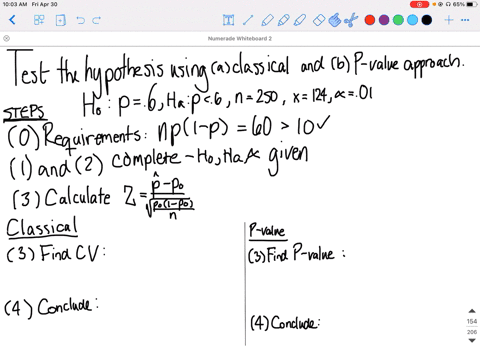 10:03 AM Fri Apr 30
65%
Numerade Whiteboard 2
Test the hypothesis using (a) classical and (b) P-value approach.
H₀: p=.6, Ha: p<.6, n=250, x=124, α=.01
STEPS
(0) Requirements: np(1-p) = 60 > 10 ✓
(1) and (2) complete - H₀, Ha, α given
(3) Calculate Z = p̂ - p₀ / √(p₀(1-p₀)/n)
Classical
(3) Find CV:
(4) Conclude:
P-value
(3) Find P-value:
(4) Conclude:
154
206